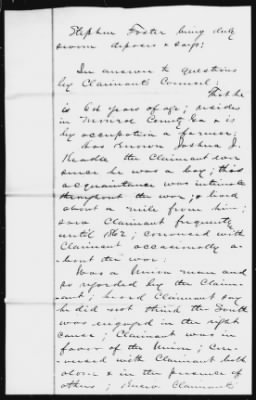 Stephen Foster being duly
sworn deposes & says:
In answer to questions
by Claimants Counsel;
That he
is 64 years of age; resides
in Monroe County Ga & is
by occupation a farmer;
has known Joshua J.
the Claimant ever
since he was a boy; this
acquaintance was intimate
throughout the war; & lived
about a mile from him;
saw Claimant frequently
until 1862; conversed with
Claimant occasionally a-
bout the war;
Was a Union man and
so regarded by the Claim-
ant; heard Claimant say
he did not think the South
was engaged in the right
cause; Claimant was in
favor of the Union; Con-
versed with Claimant both
alone & in the presence of
others; Knew Claimants